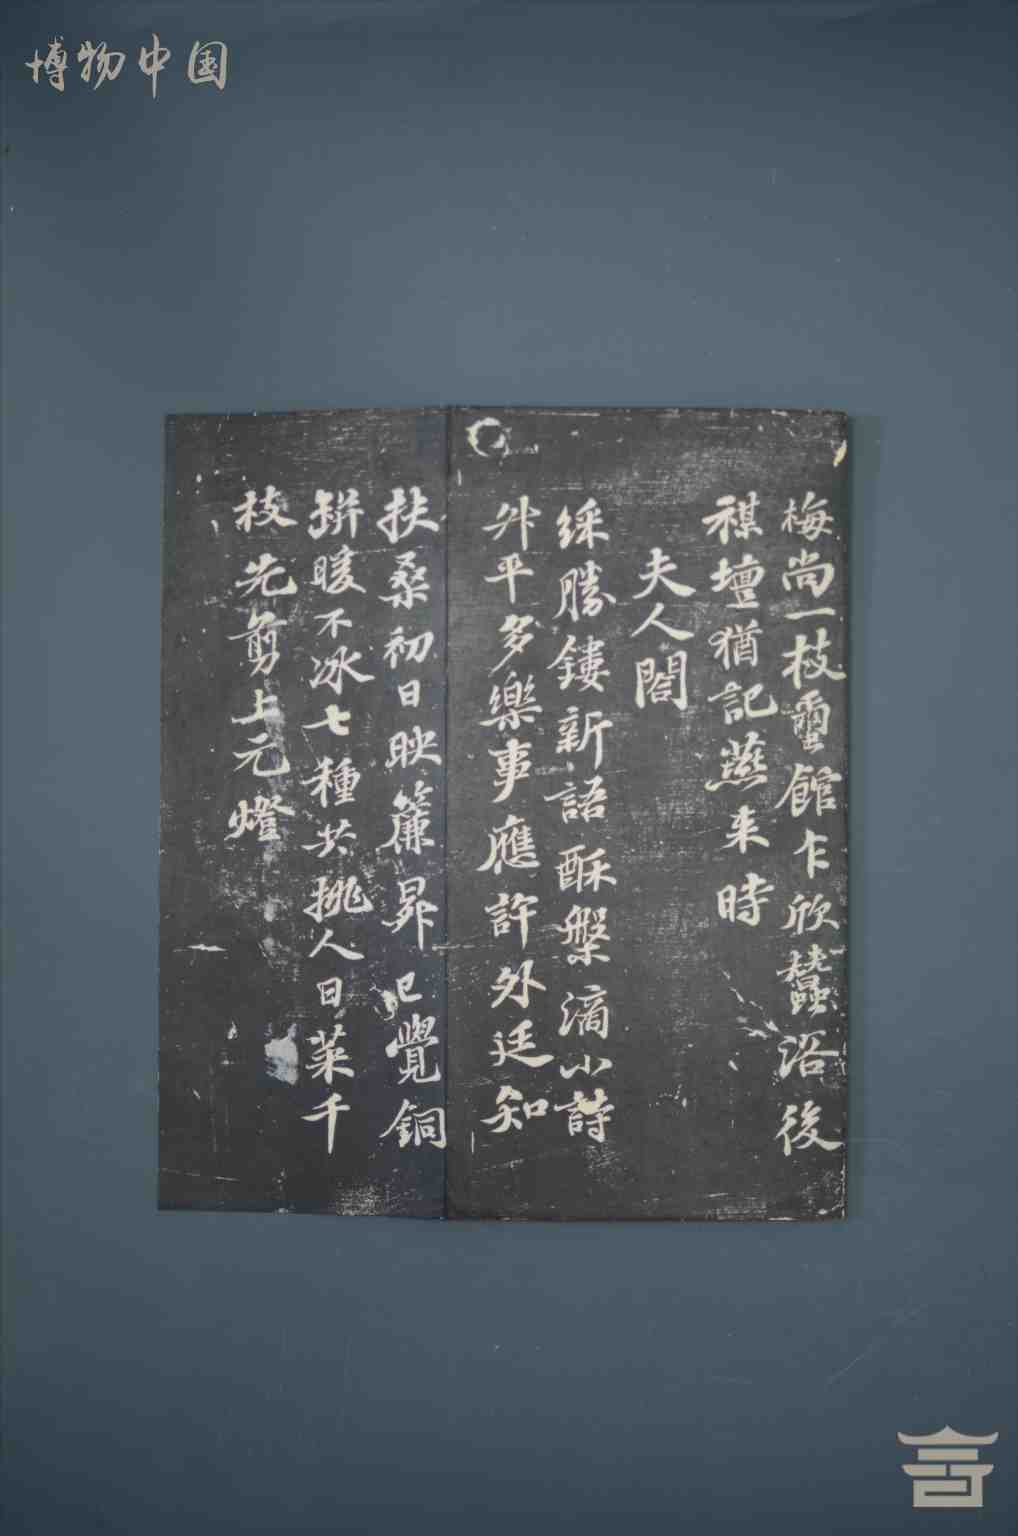 博物中国
梅尚一枝蠶館乍欣蠶浴後
禖壇猶記燕来時
夫人閤
綵勝鏤新語酥槃滴小詩
升平多樂事應許外廷知
扶桑初日映簾昇已覺銅
缾暖不冰七種共挑人日菜千
枝先剪上元燈